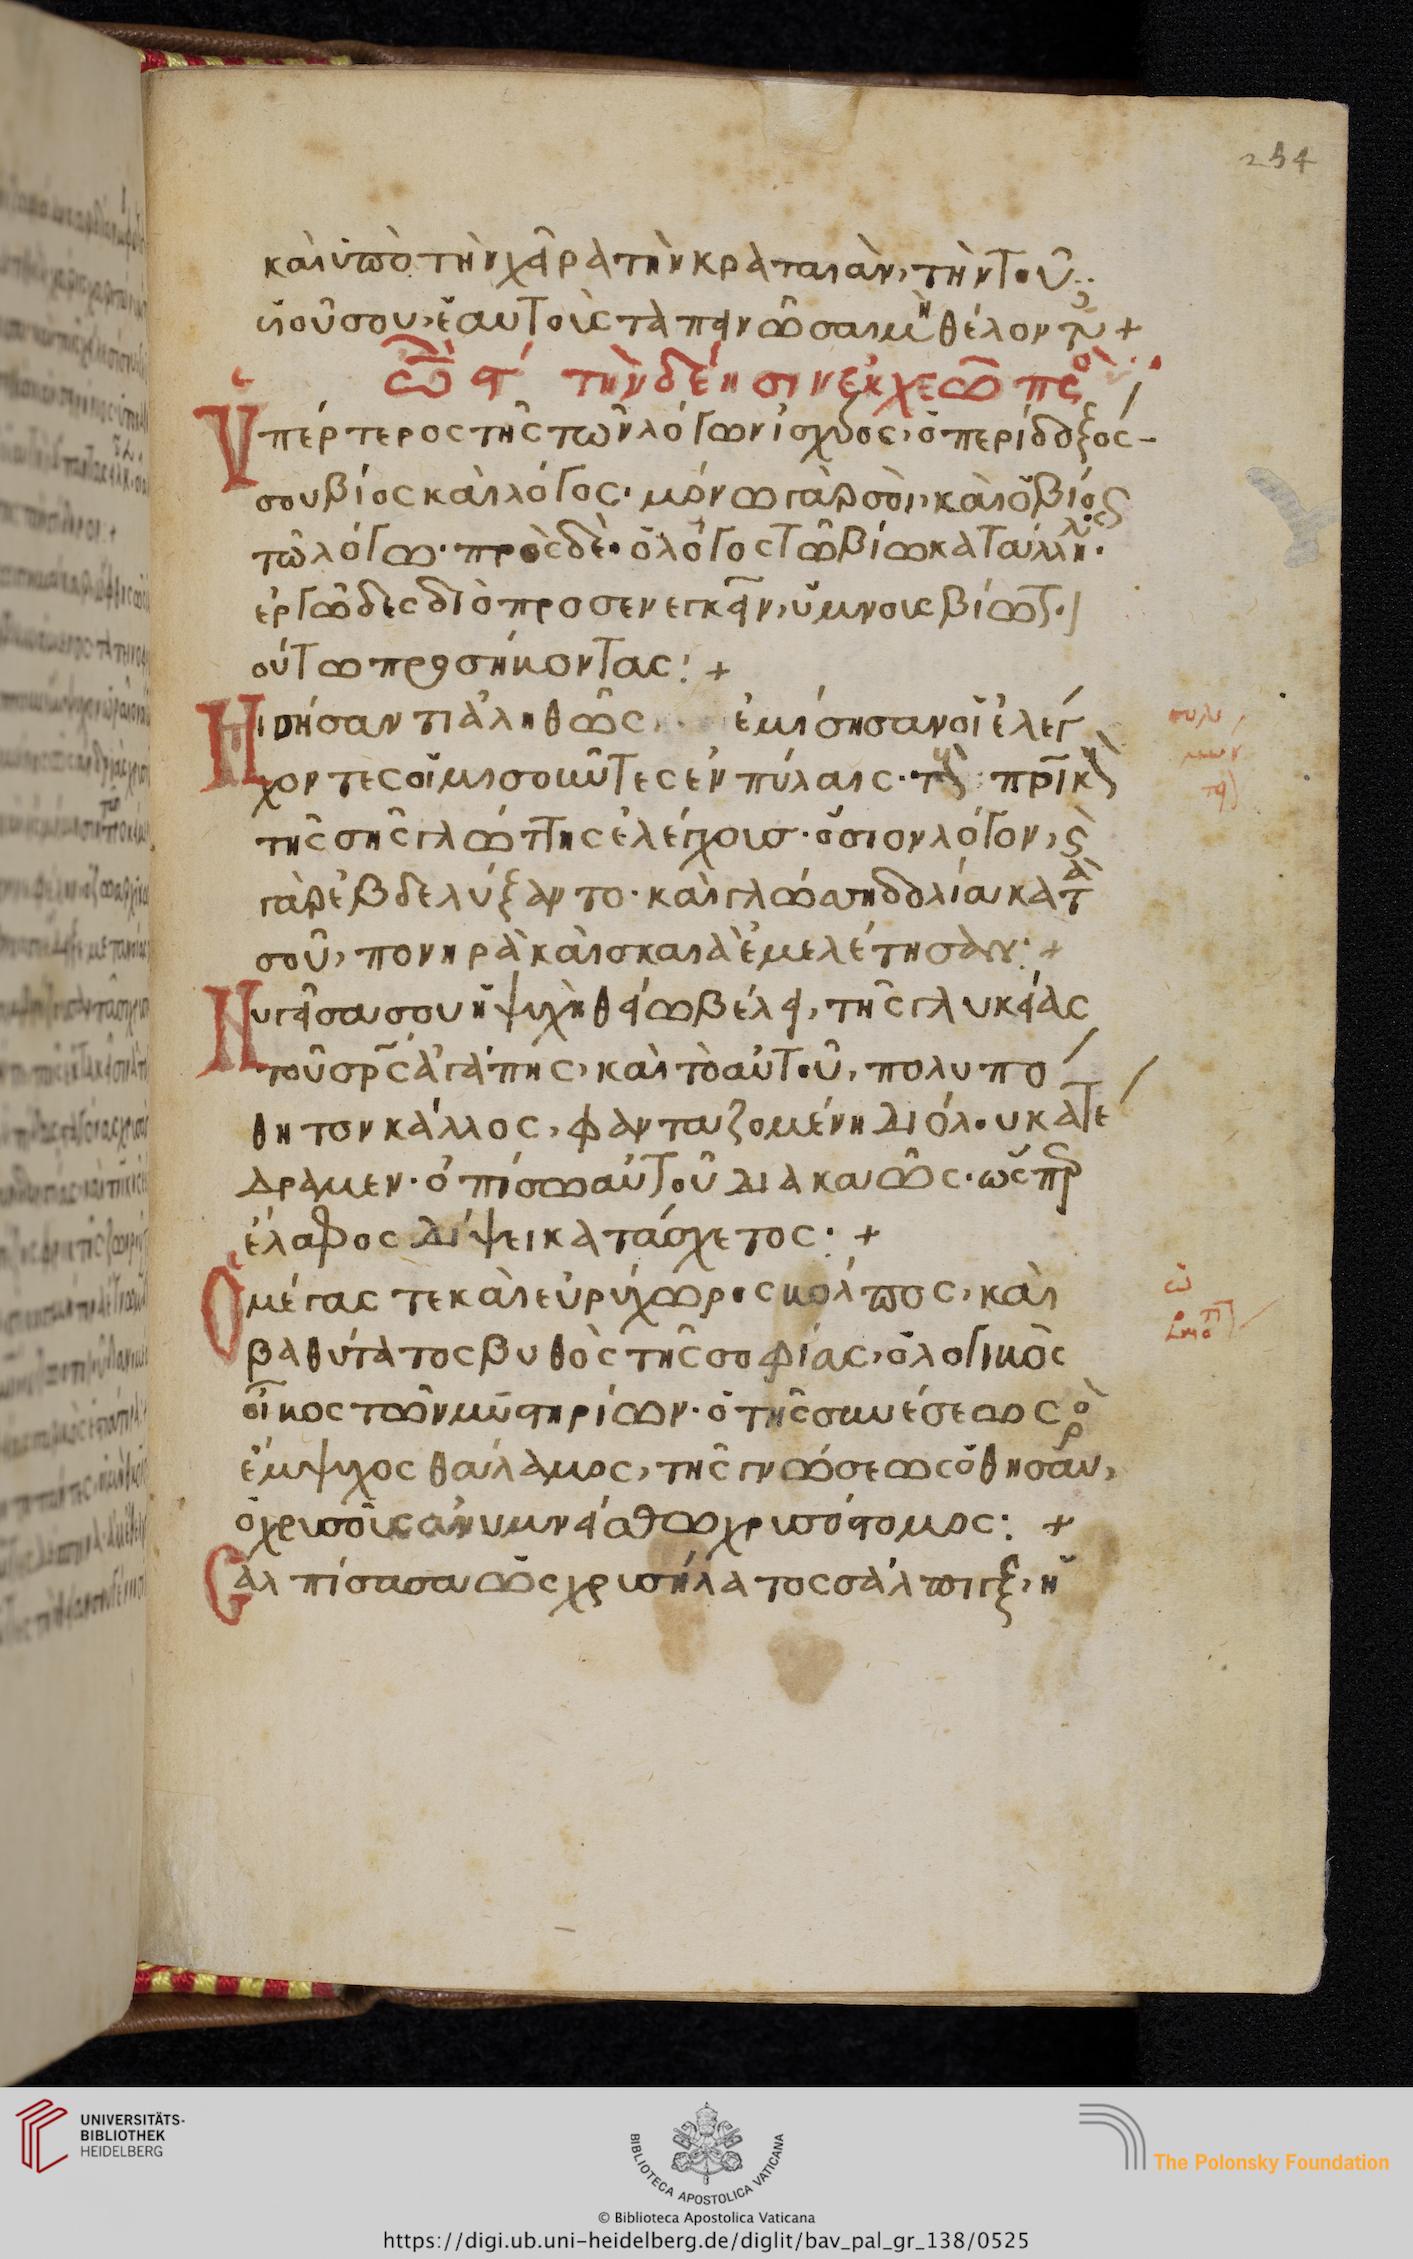 254
καὶ ὑπὸ τὴν χεῖρα τὴν κραταιὰν, τὴν τοῦ
υἱοῦ σου, ἑαυτοὺς ταπεινῶσαι μὴ θέλοντ
τὴν δέησιν ἐκχεῶ πρὸ
Ὑπέρτερος τῆς τῶν λόγων ἰσχύος, ὁ περίδοξός
σου βίος καὶ λόγος· μόνω γὰρ σοὶ, καὶ ὁ βίος
τῶ λόγω· πρὸς δὲ· ὁ λόγος τῶ βίω κατάλλη
οὕτω προσήκοντας: +
Ἠ ἀληθῶς ἐμίσησαν οἱ ἐλέγ
χοντες οἱ μισοῦντες ἐν πύλαις· πικ
τῆς σῆς γλώττης ἐλέγχους· ὅσιον λόγον,
γὰρ ἐβδελύξαντο· καὶ γλώσση δολία κατὰ
σοῦ, πονηρὰ καὶ σκαιὰ ἐμελέτησαν: +
Νυγεῖσα σου ἡ ψυχὴ θείω βέλει, τῆς γλυκείας
τοῦ σρς ἀγάπης, καὶ τὸ αὐτοῦ, πολυπό
θητον κάλλος, φανταζομένη διόλου κατέ
δραμεν· ὀπίσω αὐτοῦ διακαῶς· ὥσπερ
ἔλαφος δίψει κατάσχετος: +
Ὁ μέγας τε καὶ εὐρύχωρος κόλπος, καὶ
βαθύτατος βυθὸς τῆς σοφίας, ὁ λογικὸς
οἶκος τῶν μυστηρίων· ὁ τῆς συνέσεως
ἔμψυχος θάλαμος, τῆς γνώσεως ὁ θησαυ,
ὁ χρυσοῦς ἀνυμνείσθω χρυσόστομος: +
Σαλπίσασα ὡς χρυσήλατος σάλπιγξ, ἡ
UNIVERSITÄTS-
BIBLIOTHEK
HEIDELBERG
BIBLIOTECA APOSTOLICA VATICANA
The Polonsky Foundation
© Biblioteca Apostolica Vaticana
https://digi.ub.uni-heidelberg.de/diglit/bav_pal_gr_138/0525